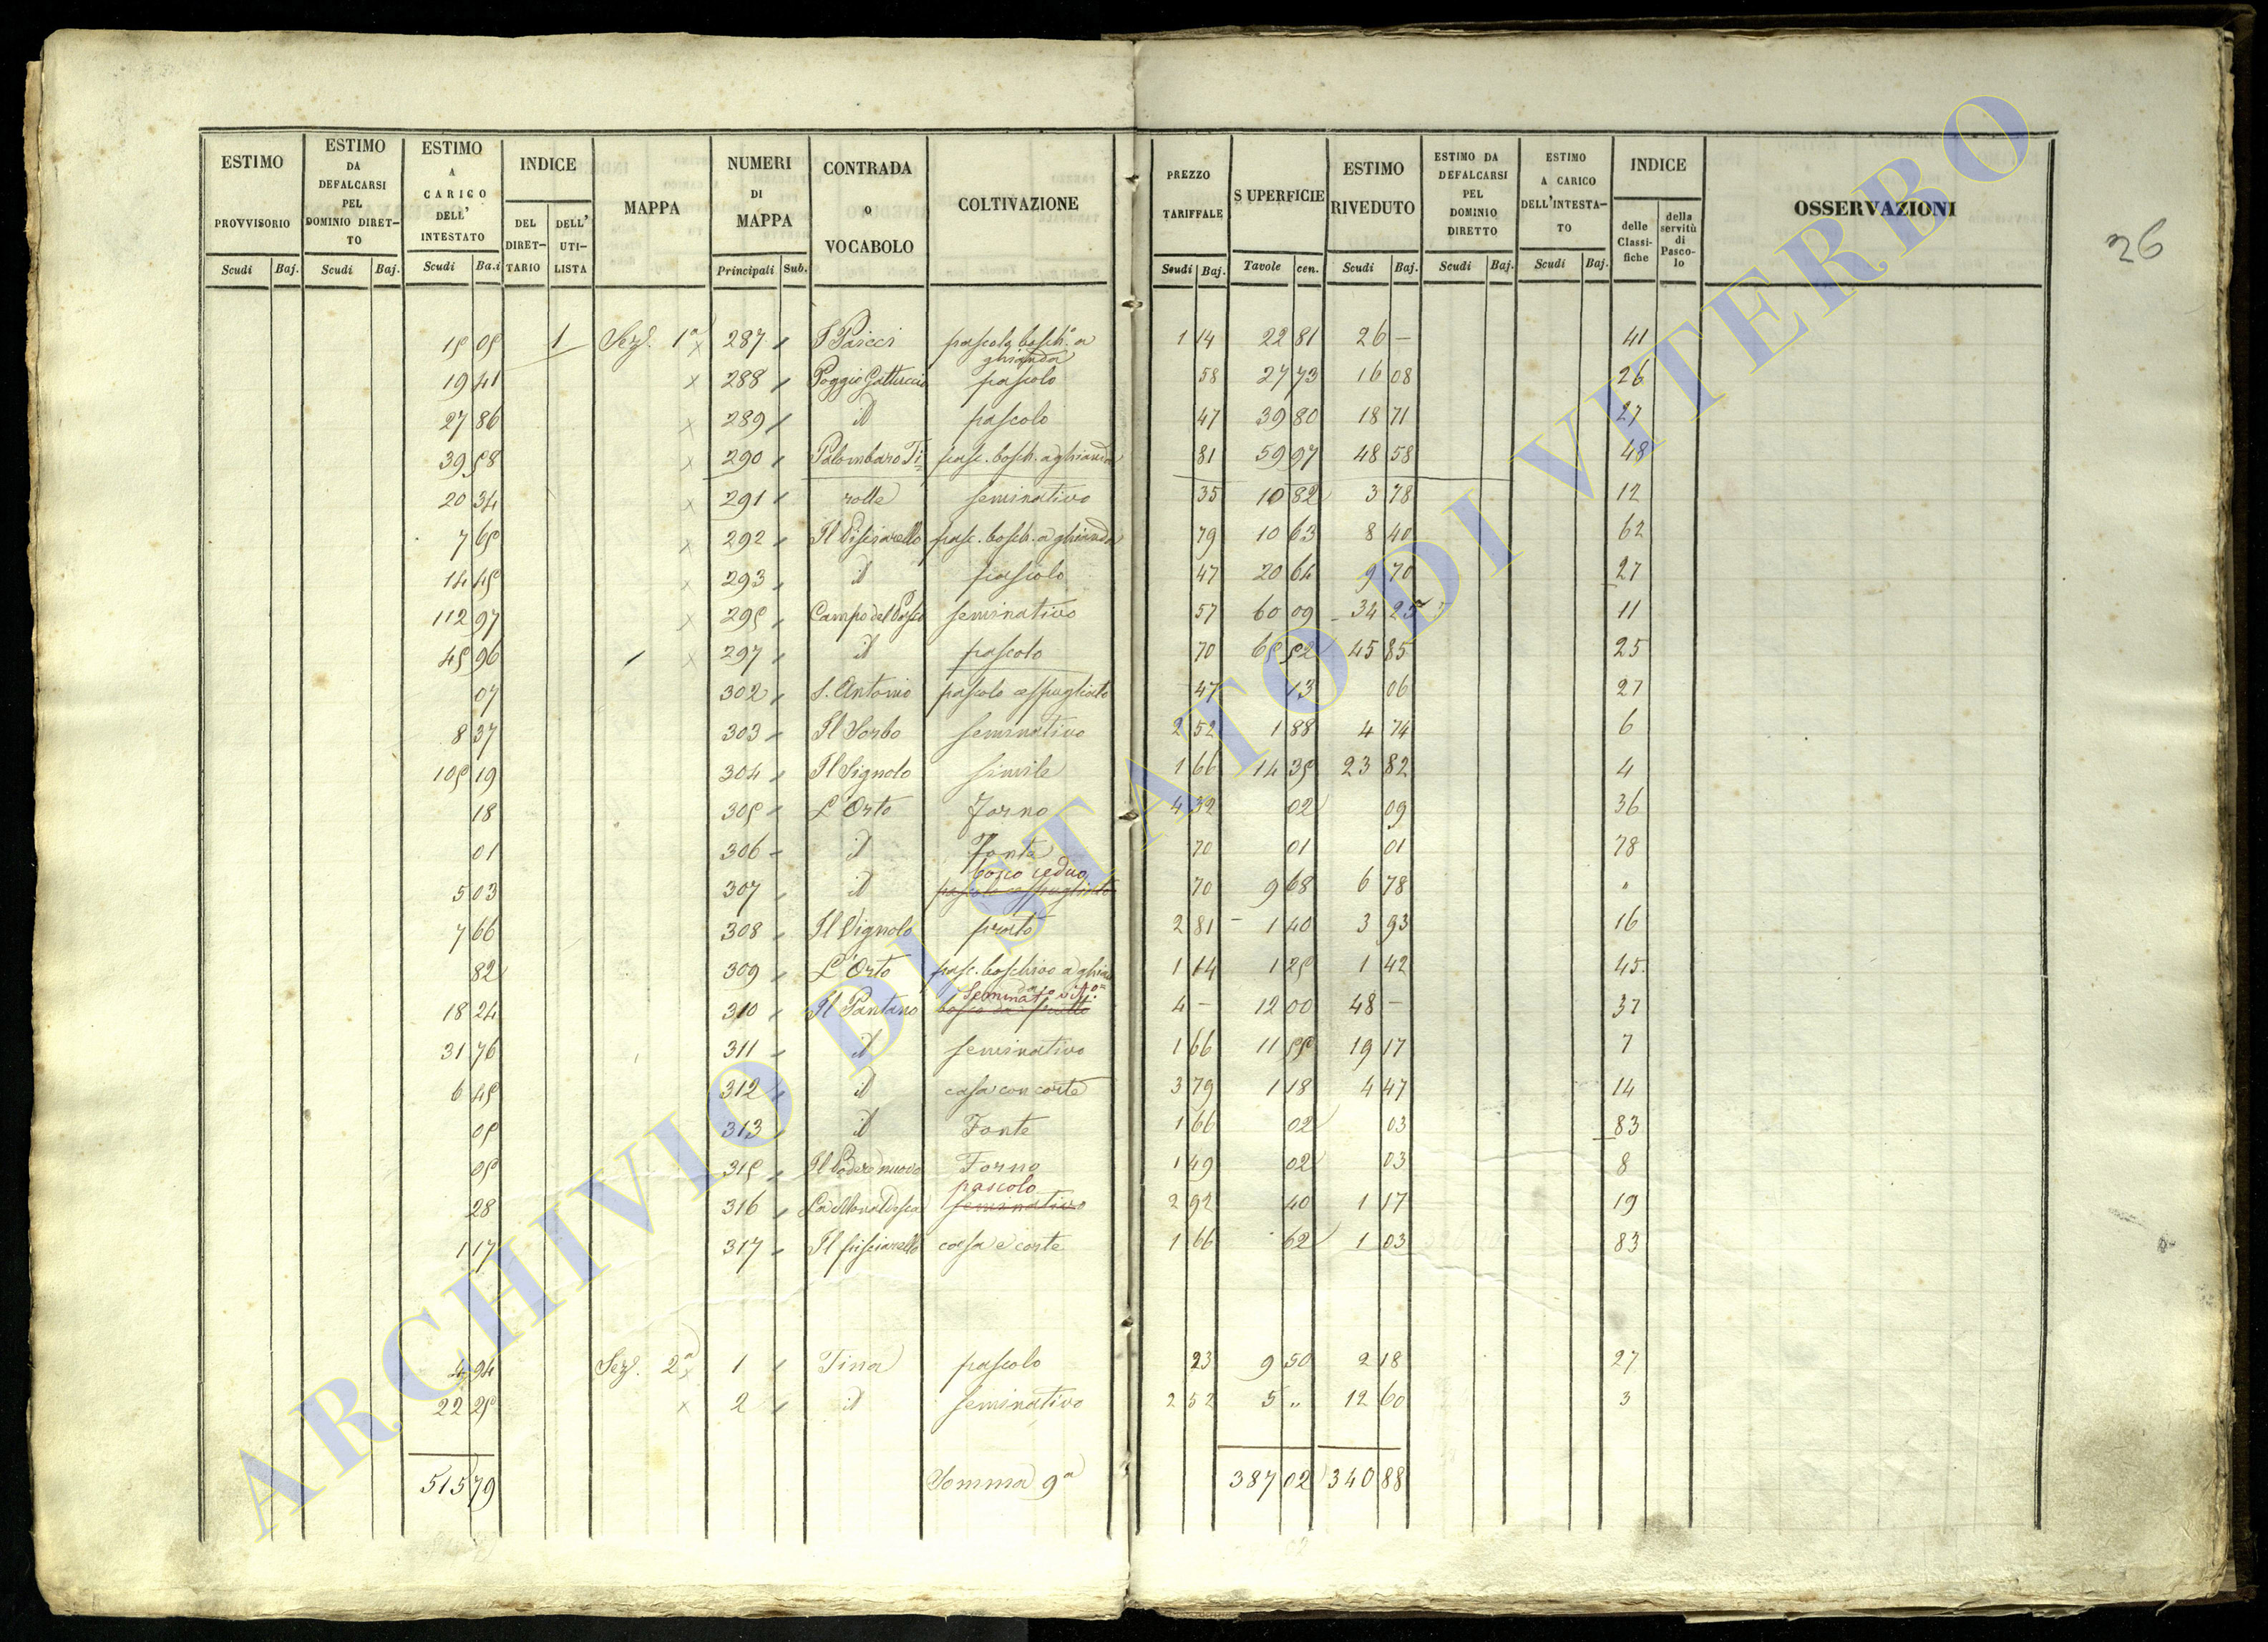 ESTIMO PROVVISORIO | ESTIMO DA DEFALCARSI PEL DOMINIO DIRETTO | ESTIMO A CARICO DELL' INTESTATO | INDICE | MAPPA | NUMERI DI MAPPA | CONTRADA o VOCABOLO | COLTIVAZIONE | PREZZO TARIFFALE | SUPERFICIE | ESTIMO RIVEDUTO | ESTIMO DA DEFALCARSI PEL DOMINIO DIRETTO | ESTIMO A CARICO DELL'INTESTATO | INDICE | OSSERVAZIONI
Scudi | Baj. | Scudi | Baj. | Scudi | Ba.i | DEL DIRETTARIO | DELL' UTILISTA | Principali | Sub. | Scudi | Baj. | Tavole | cen. | Scudi | Baj. | Scudi | Baj. | Scudi | Baj. | delle Classifiche | della servitù di Pascolo
26
15 05 | 1 | Sez. 1a x | 287 | pascolo bosch. a ghianda | 1 14 | 22 81 | 26 — | 41
19 41 | x | 288 | Poggio Gattuccio | pascolo | 58 | 27 73 | 16 08 | 26
27 86 | x | 289 | id | pascolo | 47 | 39 80 | 18 71 | 27
39 58 | x | 290 | Palombaro Ti= | pasc. bosch. a ghianda | 81 | 59 97 | 48 58 | 48
20 34 | x | 291 | rolle | seminativo | 35 | 10 82 | 3 78 | 12
7 65 | x | 292 | Il Pisciarello | pasc. bosch. a ghianda | 79 | 10 63 | 8 40 | 62
14 45 | x | 293 | id | pascolo | 47 | 20 64 | 9 70 | 27
112 97 | x | 295 | Campo del | seminativo | 57 | 60 09 | 34 25 | 11
45 96 | x | 297 | id | pascolo | 70 | 65 52 | 45 85 | 25
07 | 302 | S. Antonio | pascolo cespugliato | 47 | 13 | 06 | 27
8 37 | 303 | Il Sorbo | seminativo | 2 52 | 1 88 | 4 74 | 6
105 19 | 304 | Il Vignolo | simile | 1 66 | 14 35 | 23 82 | 4
18 | 305 | L'Orto | Forno | 4 32 | 02 | 09 | 36
01 | 306 | id | Fonte | 70 | 01 | 01 | 78
bosco ceduo
5 03 | 307 | id | pascolo cespugliato | 70 | 9 68 | 6 78 | "
7 66 | 308 | Il Vignolo | prato | 2 81 | 1 40 | 3 93 | 16
82 | 309 | L'Orto | pasc. boschivo a ghian= | 1 14 | 1 25 | 1 42 | 45
Seminat. vit.o
18 24 | 310 | Il Pantano | bosco da frutto | 4 — | 12 00 | 48 — | 37
31 76 | 311 | id | seminativo | 1 66 | 11 55 | 19 17 | 7
6 45 | 312 | id | casa con corte | 3 79 | 1 18 | 4 47 | 14
05 | 313 | id | Fonte | 1 66 | 02 | 03 | 83
05 | 315 | Il Podere nuovo | Forno | 1 49 | 02 | 03 | 8
pascolo
28 | 316 | seminativo | 2 92 | 40 | 1 17 | 19
1 17 | 317 | Il pisciarello | casa e corte | 1 66 | 62 | 1 03 | 83
4 94 | Sez. 2a x | 1 | Tina | pascolo | 23 | 9 50 | 2 18 | 27
22 25 | x | 2 | id | seminativo | 2 52 | 5 " | 12 60 | 3
515 79 | Somma 9a | 387 02 | 340 88
ARCHIVIO DI STATO DI VITERBO